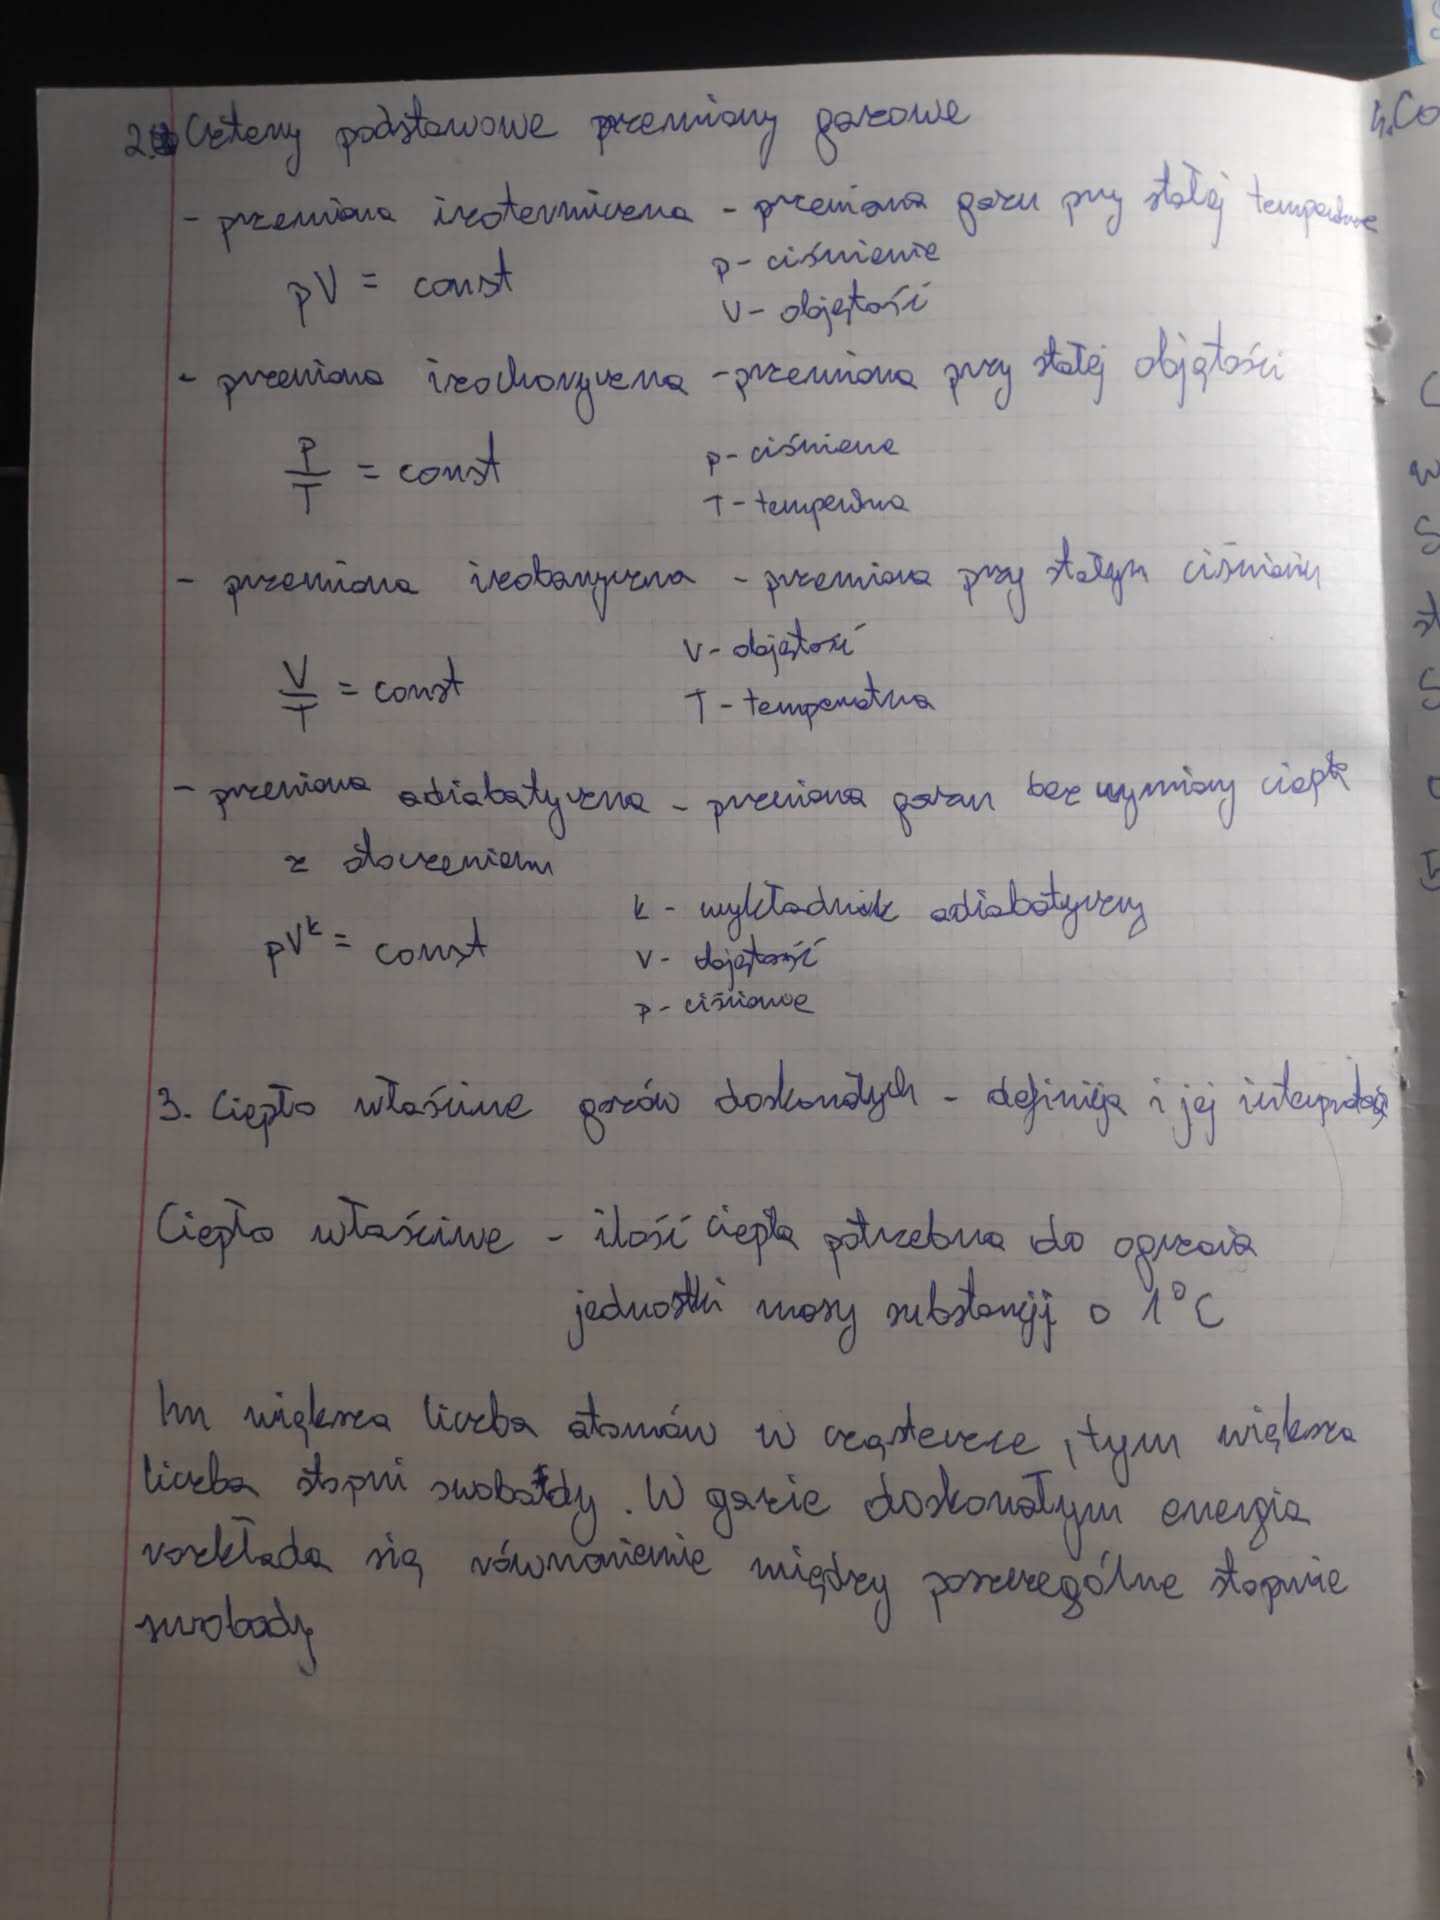 2. Cztery podstawowe przemiany gazowe
- przemiana izotermiczna - przemiana gazu przy stałej temperaturze
pV = const
p - ciśnienie
V - objętość
- przemiana izochoryczna - przemiana przy stałej objętości
p/T = const
p - ciśnienie
T - temperatura
- przemiana izobaryczna - przemiana przy stałym ciśnieniu
V/T = const
V - objętość
T - temperatura
- przemiana adiabatyczna - przemiana gazu bez wymiany ciepła
z otoczeniem
pV^k = const
k - wykładnik adiabatyczny
V - objętość
p - ciśnienie
3. Ciepło właściwe gazów doskonałych - definicja i jej interpretacja
Ciepło właściwe - ilość ciepła potrzebna do ogrzania
jednostki masy substancji o 1°C
Im większa liczba atomów w cząsteczce, tym większa
liczba stopni swobody. W gazie doskonałym energia
rozkłada się równomiernie między poszczególne stopnie
swobody
4. Co